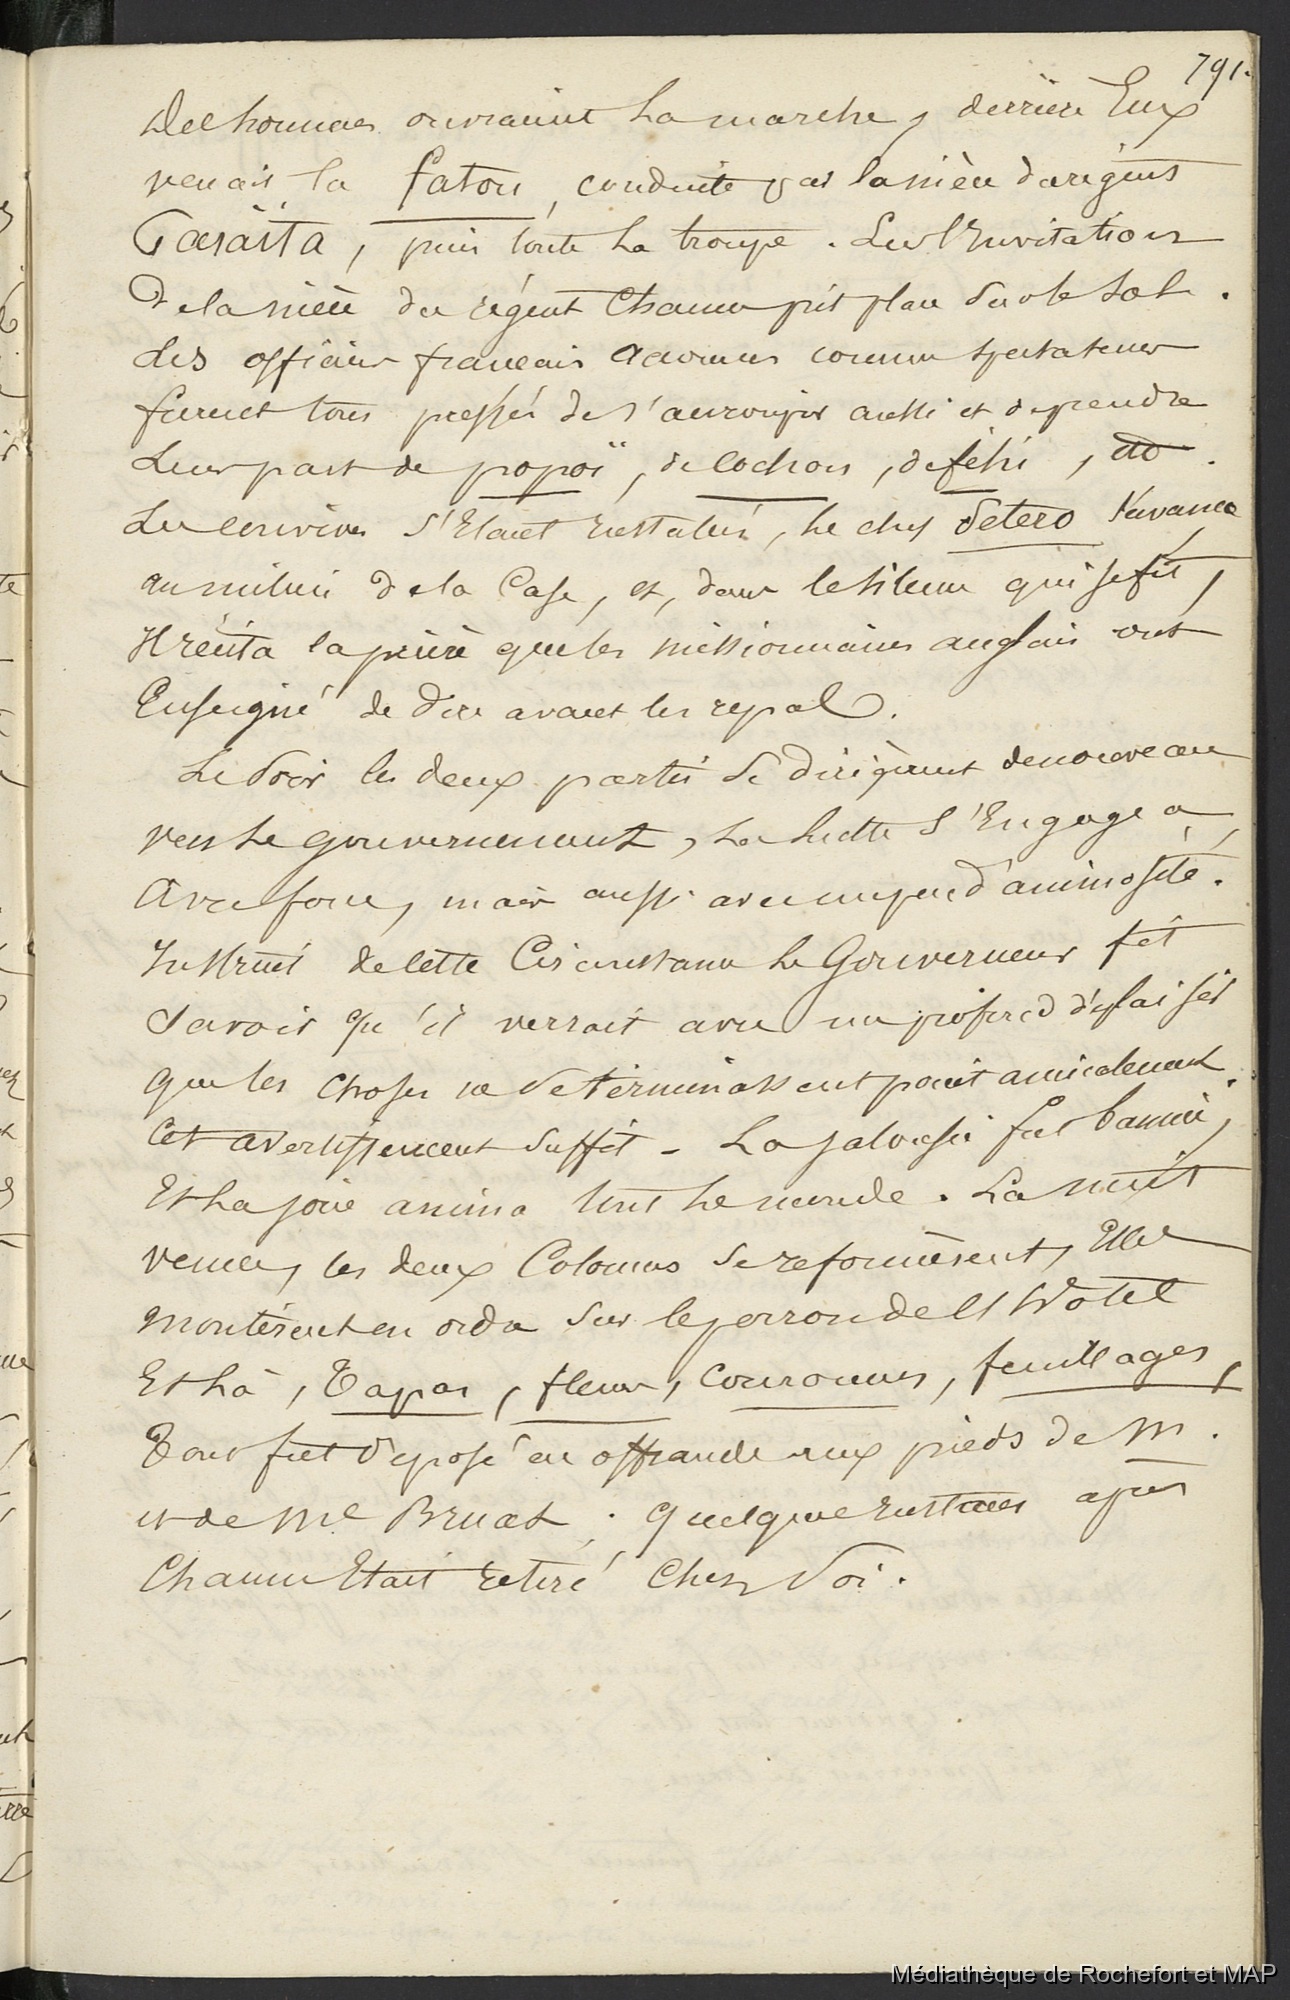 791.
Des hommes ouvraient la marche, derrière Eux
venait la fatou, conduite par la mère du régent
Paraïta, puis toute la troupe. Sur l'Invitation
De la mère du régent Chacun prit place sur le sol.
des officiers français accourus comme spectateurs
furent tous pressés de s'accroupir aussi et de prendre
Leur part de popoï, de cochon, de féhi, etc.
Les convives s'Etant Installés, le chef Vetero s'avança
au milieu de la Case, et, dans le silence qui se fit,
Il récita la prière que les missionnaires anglais ont
Enseigné de dire avant les repas.
Le Soir les deux partis se dirigèrent de nouveau
vers le gouvernement, la lutte s'Engagea
Avec force, mais aussi avec un peu d'animosité.
Instruit de cette Circonstance le Gouverneur fit
Savoir qu'il verrait avec un profond déplaisir
que les choses ne se terminassent point amicalement.
Cet avertissement suffit - La jalousie fut bannie,
Et la joie anima tout le monde. La nuit
venue, les deux Colonnes se reformèrent, Elles
Montèrent en ordre sur le perron de l'Hôtel
Et là, Tapas, fleurs, couronnes, feuillages,
Tout fut déposé en offrande aux pieds de M.
et de Me Bruat. quelques Instants après
Chacun Etait retiré Chez Soi.
Médiathèque de Rochefort et MAP